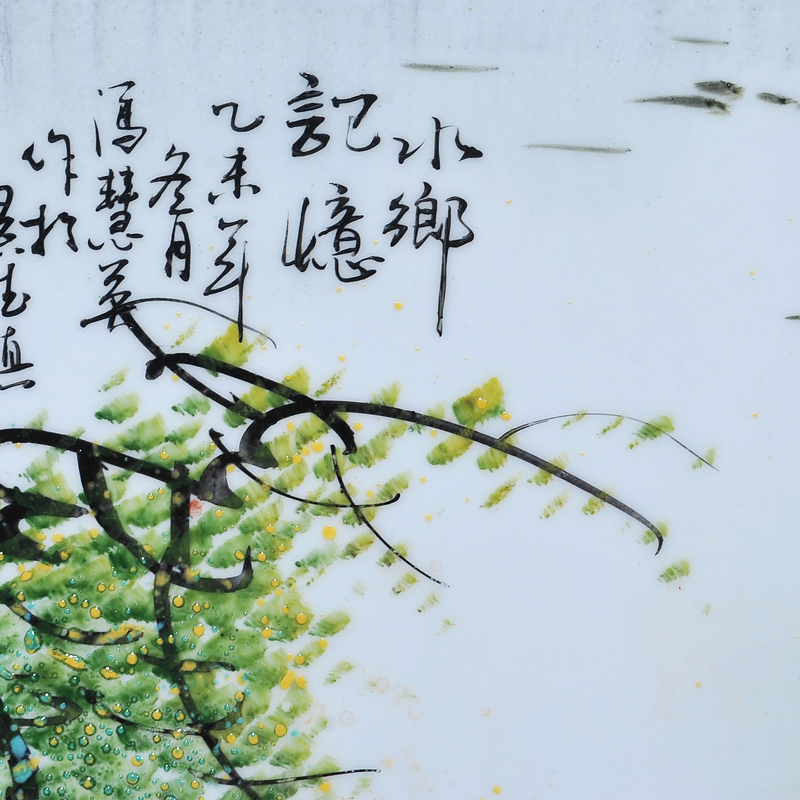 水鄉
記憶
乙未年
冬月
馮慧英
作於
景德鎮